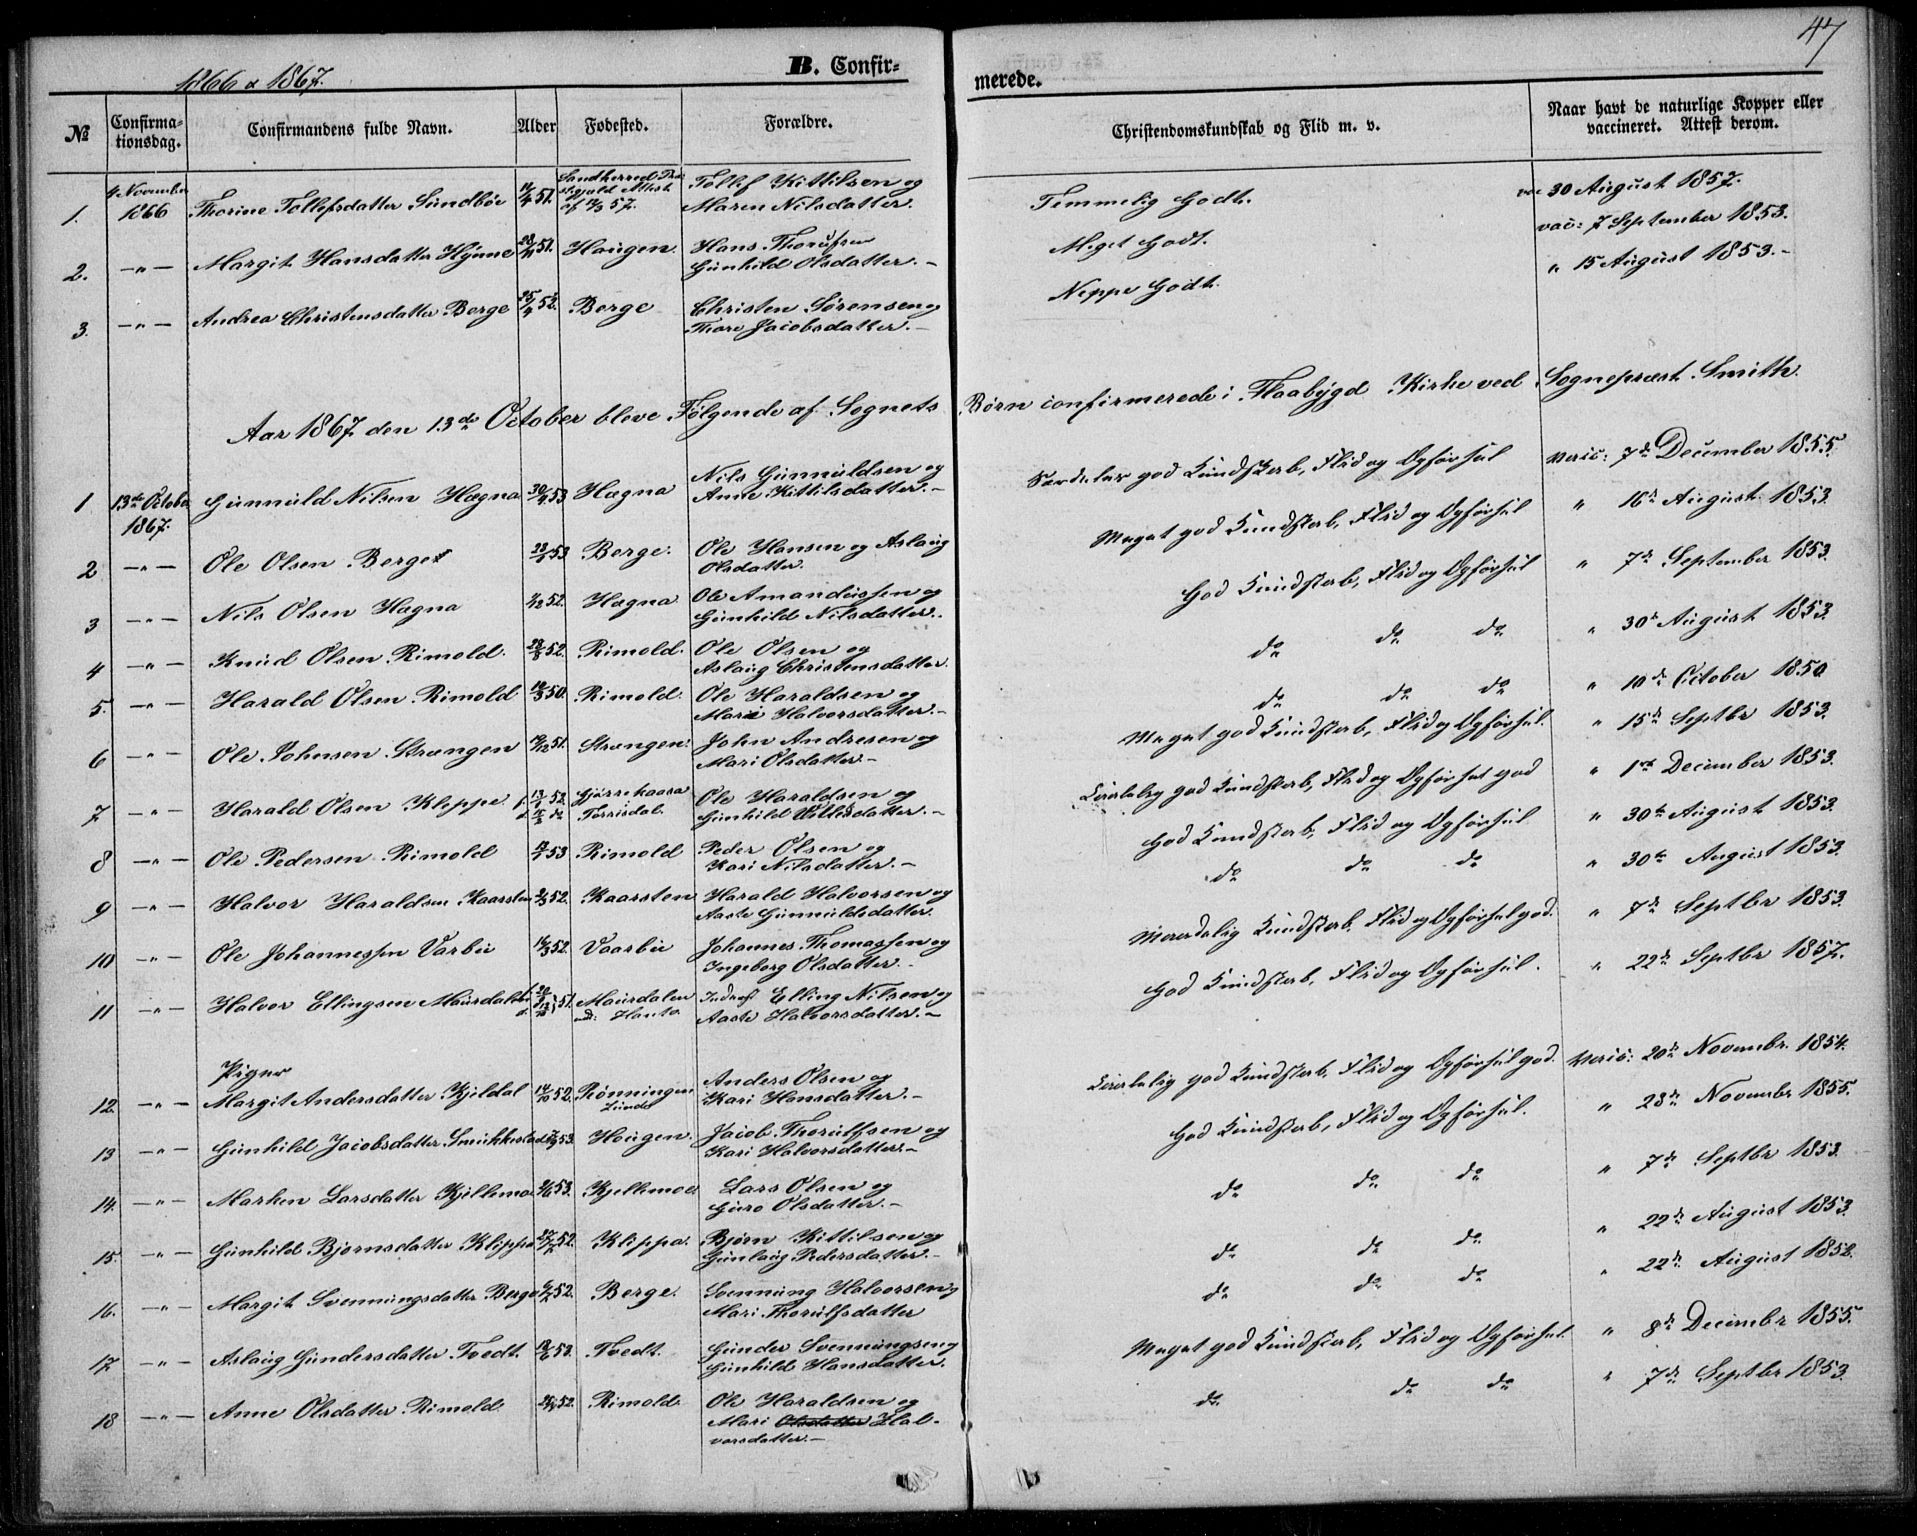 47
1866 & 1867.
B. Confirmerede.
№ Confirmationsdag. Confirmandens fulde Navn. Alder Fødested. Forældre. Christendomskundskab og Flid m. v. Naar havt de naturlige Kopper eller vaccineret. Attest derom.
1. 4 November 1866 Thorine Tollefsdatter Sundbøe 51. Tollef Kittilsen og Maren Nilsdatter. Temmelig Godt. vac 30 August 1857.
2. —„— Margit Hansdatter Hynne 51. Haugen. Hans Thorufsen Gunhild Olsdatter. — Meget Godt. vac: 7 September 1853.
3. —„— Andrea Christensdatter Berge 25/4 52. Berge Christen Sørensen og Thore Jacobsdatter. — Neppe Godt. „ 15 August 1853. —
Aar 1867 den 13de October bleve Følgende af Sognets Børn confirmerede i Flaabygd Kirke ved Sognepræst Smith.
1 13de October 1867. Gunnuld Nilsen Hægna 53 Hægna Nils Gunnuldsen og Anne Kittilsdatter. — Særdeles god Kundskab, Flid og Opførsel 7de December 1855.
2 —„— Ole Olsen Berge 53 Berge. Ole Hansen og Aslaug Olsdatter. Meget god Kundskab, Flid og Opførsel „ 16de August 1853
3 —„— Nils Olsen Hægna 2/12 52. Hægna Ole Amandussen og Gunhild Nilsdatter. God Kundskab, Flid og Opførsel „ 7de September 1853.
4 —„— Knud Olsen Rimold. 52. Rimold. Ole Olsen og Aslaug Christensdatter. do do do „ 30te August 1853.
5. —„— Harald Olsen Rimold 50. Rimold. Ole Haraldsen og Marie Halvorsdatter. — do do do „ 10de October 1850
6 —„— Ole Johnsen Strængen 51. Strængen. John Andresen og Mari Olsdatter. — Meget god Kundskab, Flid og Opførsel. „ 15de Septbr 1853.
7. —„— Harald Olsen Kleppe. 52. Torrisdal. Ole Haraldsen og Gunhild — god Kundskab, Flid og Opførsel god „ 1ste December 1853.
8 —„— Ole Pedersen Rimold 53 Rimold Peder Olsen og Kari Nilsdatter. — God Kundskab, Flid og Opførsel „ 30te August 1853.
9 —„— Halvor Haraldsen Kaarsten 52. Kaarsten Harald Halvorsen og Aaste Gunnuldsdatter. do do do „ 30te August 1853.
10 —„— Ole Johannessen Varbu 52. Vaarbu Johannes Thomassen og Ingeborg Olsdatter. Maadelig Kundskab, Flid og Opførsel god. „ 7de Septbr 1853.
11 —„— Halvor Ellingsen Maurdalen 51. Maurdalen Elling Nilsen og Aaste Halvorsdatter. — God Kundskab, Flid og Opførsel. „ 22de Septbr 1857.
Piger
12. —„— Margit Andersdatter Kjeldal 52. Rønningen Lunde Anders Olsen og Kari Hansdatter. — god Kundskab, Flid og Opførsel god. 20de Novembr. 1854.
13 —„— Gunhild Jacobsdatter Smukkestad 53. Hougen. Jacob Thorulfsen og Kari Halvorsdatter. — God Kundskab, Flid og Opførsel. „ 28de Novembr 1855.
14. —„— Marken Larsdatter Kjellemo 53. Kjellemoe Lars Olsen og Guro Olsdatter. — do do do „ 7de Septbr 1853.
15. —„— Gunhild Bjørnsdatter Klippa 52. Klippa. Bjørn Kittilsen og Gunlaug Pedersdatter. — do do do „ 22de August 1853.
16. —„— Margit Svennungsdatter Berge 52. Berge. Svennung Halvorsen og Mari Thorulfsdatter do do do „ 22de August 1852.
17 —„— Aslaug Gundersdatter Tvedt. 53. Tvedt. Gunder Svennungsen og Gunhild Hansdatter. Meget god Kundskab, Flid og Opførsel. „ 8de Decembr 1855.
18 —„— Anne Olsdatter Rimold. 52. Rimold. Ole Haraldsen og Mari Olsdatter Halvorsdatter. — do do do „ 7de Septbr 1853.